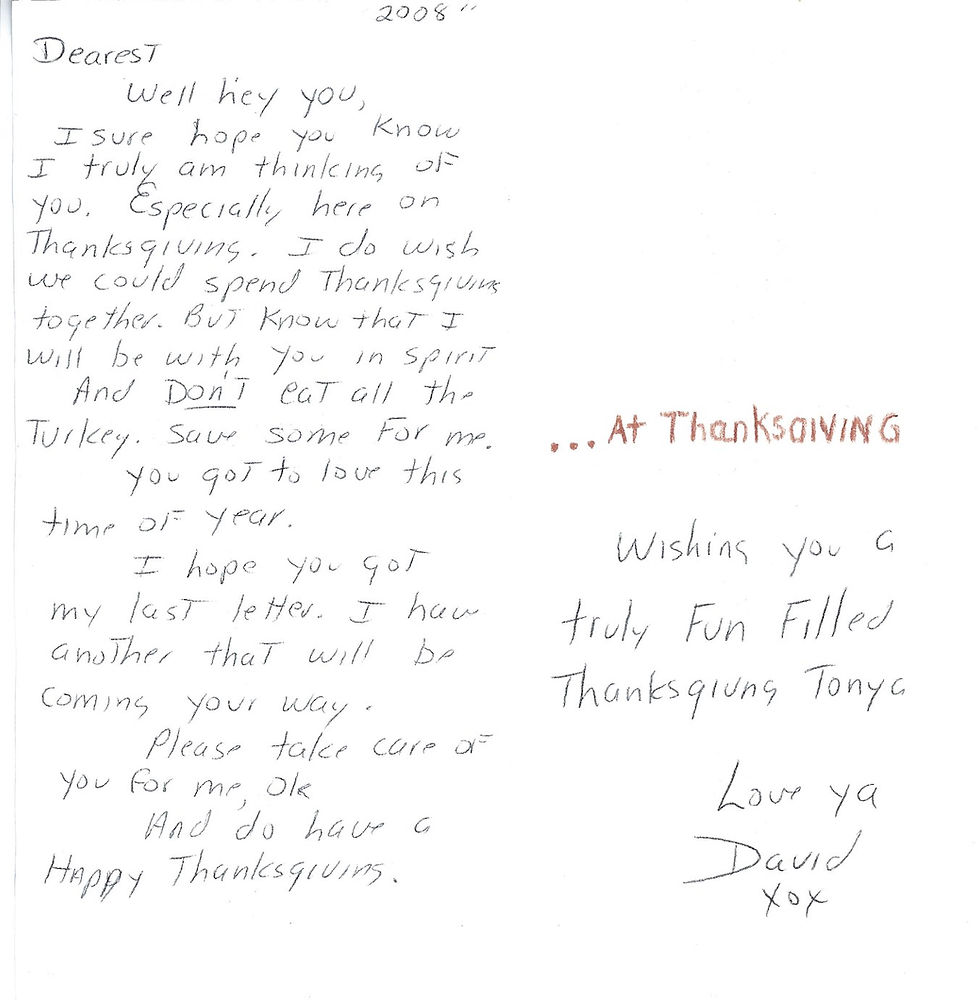 2008"
Dearest
Well hey you,
I sure hope you know
I truly am thinking of
you. Especially here on
Thanksgiving. I do wish
we could spend Thanksgiving
together. But know that I
will be with you in spirit
And Don't eat all the
Turkey. Save some For me.
you got to love this
time of year.
I hope you got
my last letter. I have
another that will be
coming your way.
Please take care of
you for me, ok
And do have a
Happy Thanksgiving.
...At Thanksgiving
Wishing you a
truly Fun Filled
Thanksgiving Tonya
Love ya
David
xox